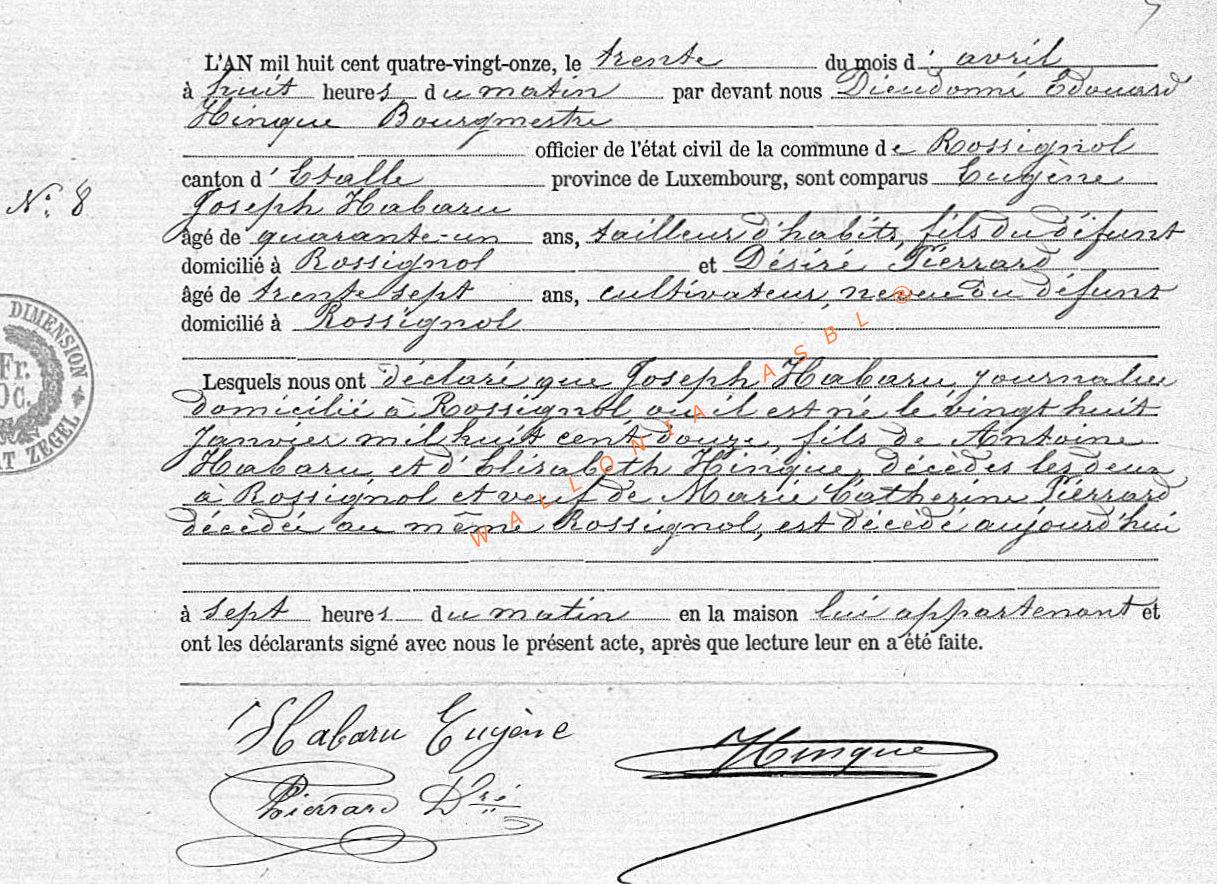 L'AN mil huit cent quatre-vingt-onze, le trente du mois d'avril
à huit heures du matin par devant nous Dieudonné Edouard
Hinque Bourgmestre
officier de l'état civil de la commune de Rossignol
canton d'Etalle province de Luxembourg, sont comparus Eugène
N.° 8
Joseph Habaru
âgé de quarante-un ans, tailleur d'habits, fils du défunt
domicilié à Rossignol et Désiré Pierrard
âgé de trente sept ans, cultivateur, neveu du défunt
domicilié à Rossignol
Lesquels nous ont déclaré que Joseph Habaru, journalier
domicilié à Rossignol où il est né le vingt huit
janvier mil huit cent douze, fils de Antoine
Habaru et d'Elisabeth Hinque, décédés les deux
à Rossignol et veuf de Marie Catherine Pierrard
décédée au même Rossignol, est décédé aujourd'hui
à sept heures du matin en la maison lui appartenant et
ont les déclarants signé avec nous le présent acte, après que lecture leur en a été faite.
Habaru Eugène
Hinque
Pierrard Dré
DIMENSION
Fr.
C.
ZEGEL
WALLONIA ASBL ®